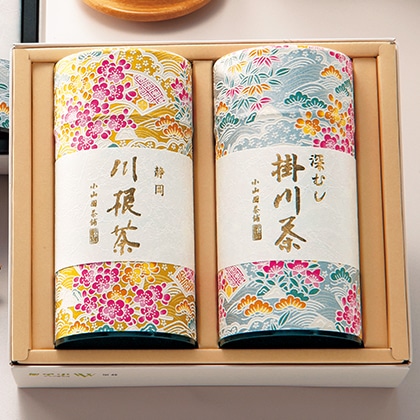 静岡
川根茶
小山園茶舗
深むし
掛川茶
小山園茶舗